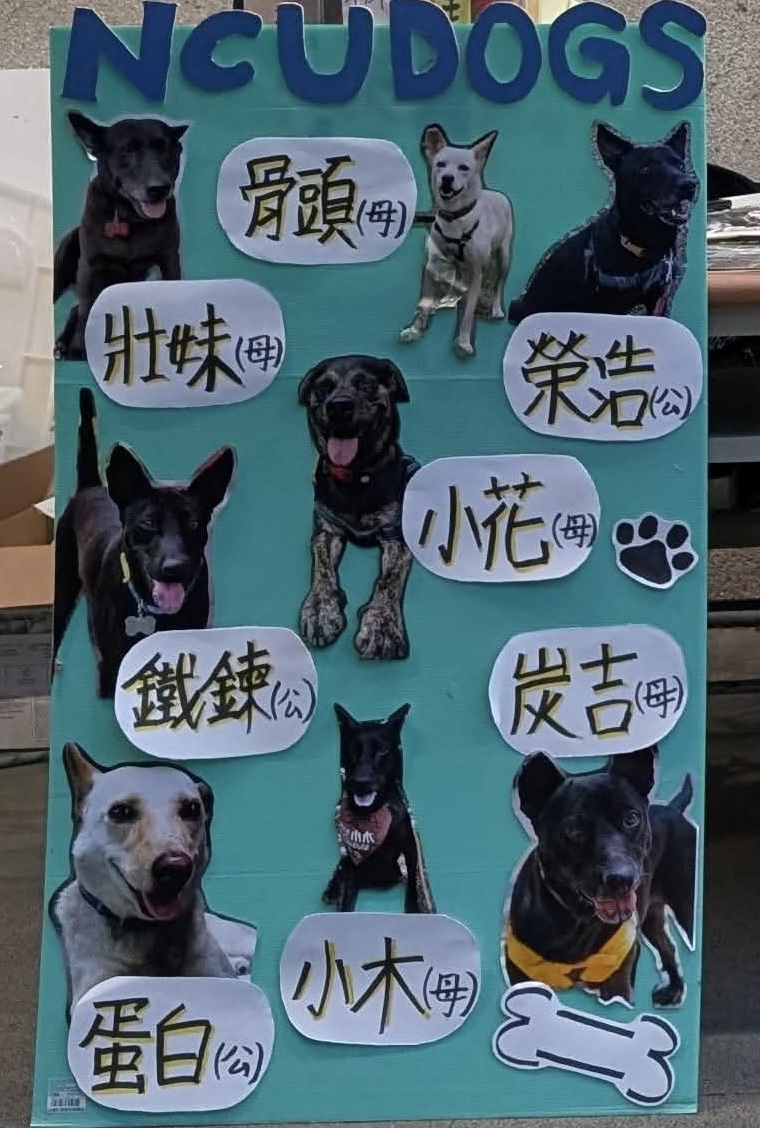 NCUDOGS
骨頭(母)
壯妹(母)
榮浩(公)
小花(母)
鐵鍊(公)
炭吉(母)
小木(母)
蛋白(公)